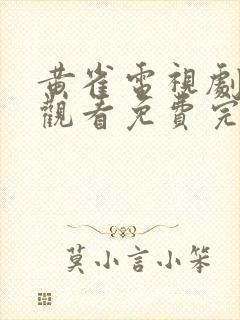 黃雀電視劇
觀看免費完
莫小言小笨